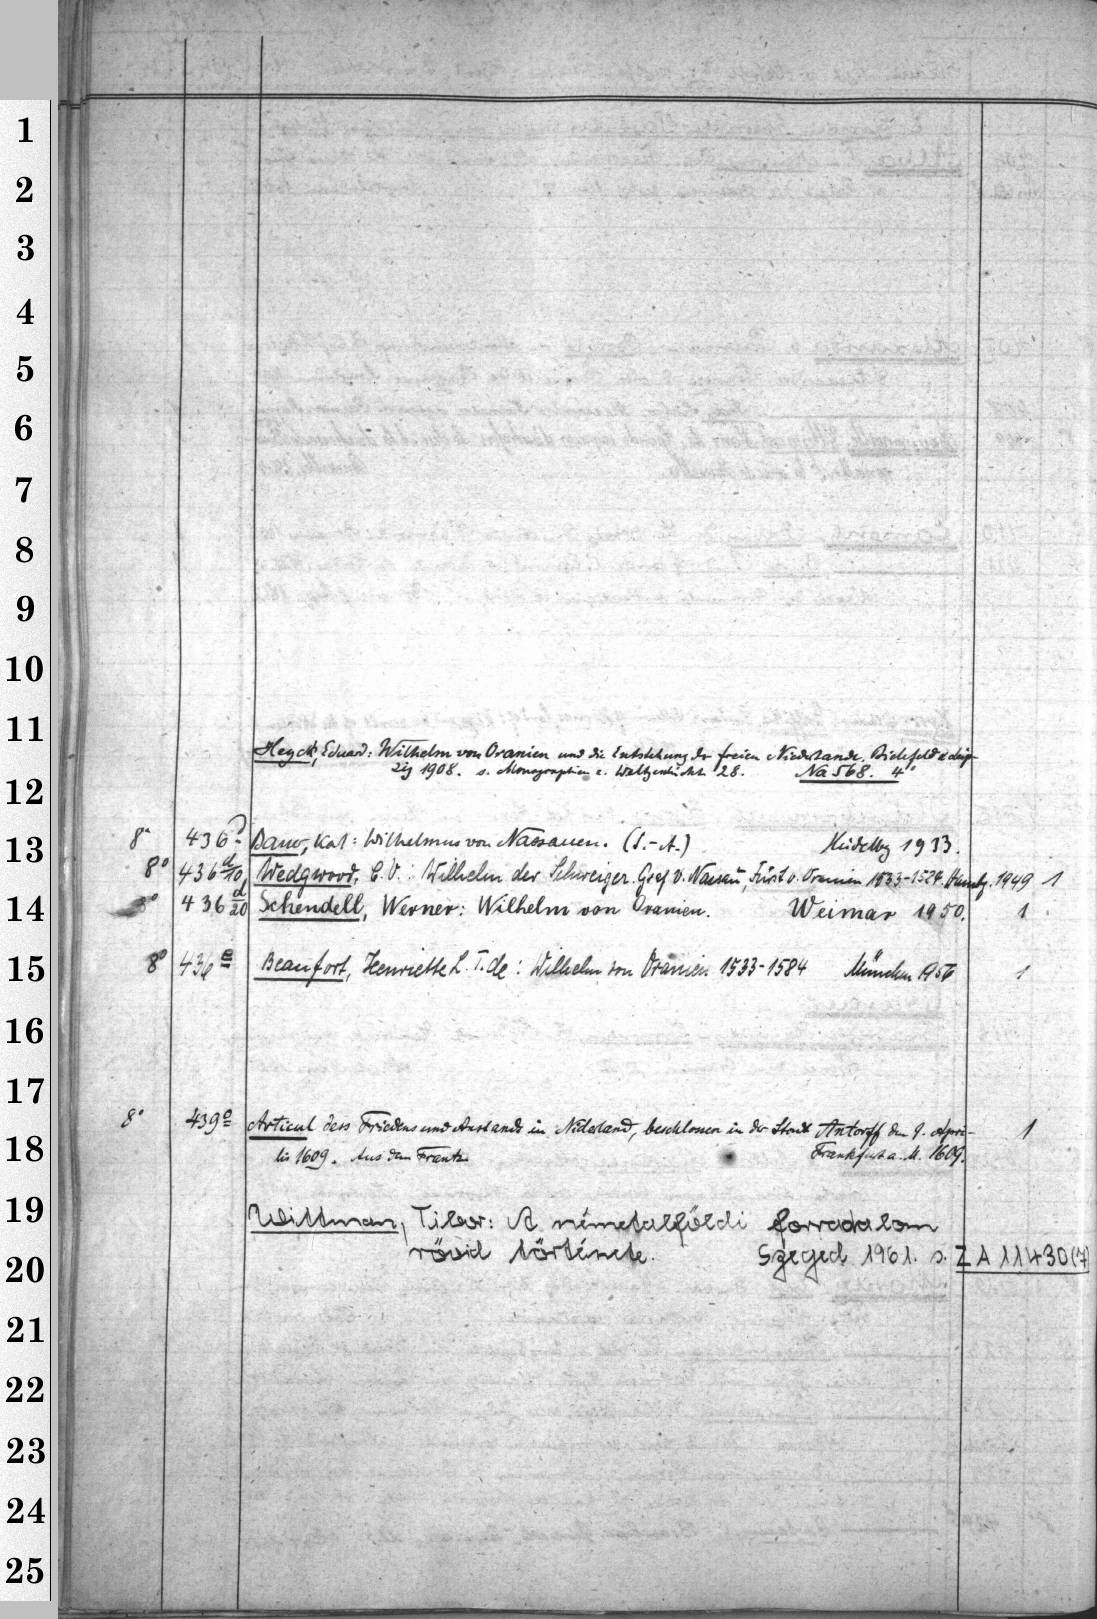 1
2
3
4
5
6
7
8
9
10
11
Heyck, Eduard: Wilhelm von Oranien und die Entstehung der freien Niederlande. Bielefeld u. Leip-
zig 1908. s. Monographien z. Weltgeschichte 28. Na 568. 4°
12
13 8° 436 Wilhelmus von Nassauen. (S.-A.) Heidelbg 1933.
8° 436 d/10 Wedgwood, C. V.: Wilhelm der Schweiger. Graf v. Nassau, Fürst v. Oranien 1533-1584. Hambg. 1949 1
14 8° 436 d/20 Schendell, Werner: Wilhelm von Oranien. Weimar 1950. 1
15 8° 436 e Beaufort, Henriette L. T. de: Wilhelm von Oranien 1533-1584 München 1956 1
16
17
8° 439 e Articul dess Friedens und Anstands in Niderland, beschlossen in der Stadt Antorff den 9. Apri-
18 lis 1609. Aus dem Frantz. Frankfurt a. M. 1609. 1
19 Wittman, Tibor: A németalföldi forradalom
rövid története. Szeged 1961. s. ZA 11430(7)
20
21
22
23
24
25